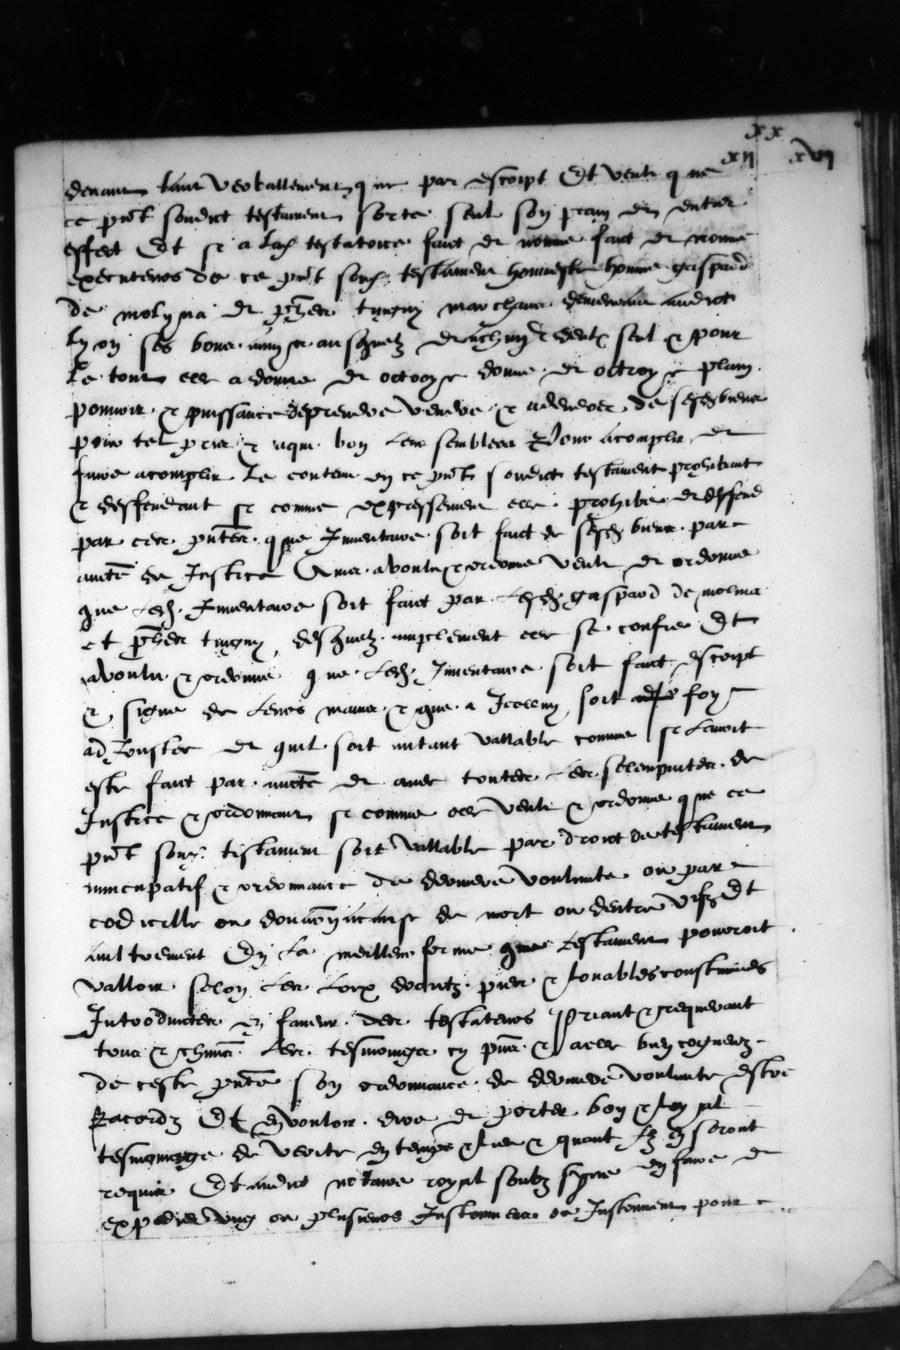 xx
xii xvi
devant tant verballement que par escript Et veult que
ce pnt sondict testament sorte seul son plain et entier
effect Et se a lad testatrice faict et nomme faict et nomme
executeurs de ce pnt son testament honneste homme gaspard
de molyna et tingny marchans demeurans audict
lyon ses bons amys ausquelz et chung deulx seul & pour
le tout elle a donne et octroye donne et octroye plain
pouvoir & puissance de prendre vendre & aliener de sesd biens
pour tel pris & a qui bon leur semblera Pour acomplir et
faire acomplir le contenu en ce pnt sondict testament prohibant
& deffendant se comme expressement elle prohibe et deffend
par ces pntes que Inventaire soit faict de sesd biens par
aucte de Justice Ains a voulu & ordonne veult et ordonne
que led Inventaire soit faict par lesd gaspard de molina
et tingny desquelz amplement elle se confie Et
a voulu & ordonne que led Inventaire soit faict escript
& signe de leurs mains & que a Icelluy soit foy
adjoustee et quil soit autant vallable comme se lavoit
este faict par aucte et avec toutes les solempnitez de
Justice & ordonnant se comme elle veult & ordonne que ce
pnt son testament soit vallable par droict de testament
nuncupatif & ordonnance de derniere voulunte ou par
codicille ou donaon a cause de mort ou dentre vifz Et
aultrement En la meilleur forme que testament pourroit
valloir selon les loix droictz & louables coustumes
Introduictes en faveur des testateurs Priant & requerant
tous & chuns les tesmoings cy pns & a elle bien cogneuz
de ceste pnte son ordonnance de derniere voulunte estre
Recordz Et en voulloir dire et porter bon & loyal
tesmoignage de verite en temps & lieu & quant Ilz en seront
requis Et audict notaire royal soubz signe en faire et
expedier ung ou plusieurs Instrumens ou Instrument pour